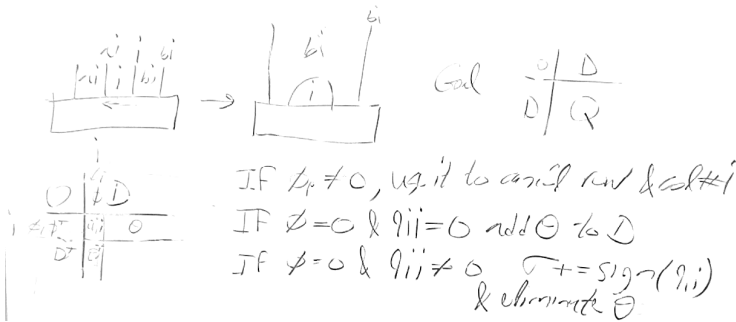 ai i bi
ai i bi
bi
i
bi
Goal
0 D
D Q
i
0 ϕ D
i ϕT qii θ
DT θT
IF ϕ ≠ 0, use it to cancel row & col #i
IF ϕ=0 & qii=0 add θ to D
IF ϕ=0 & qii≠0 σ+=sign(qii)
& eliminate θ